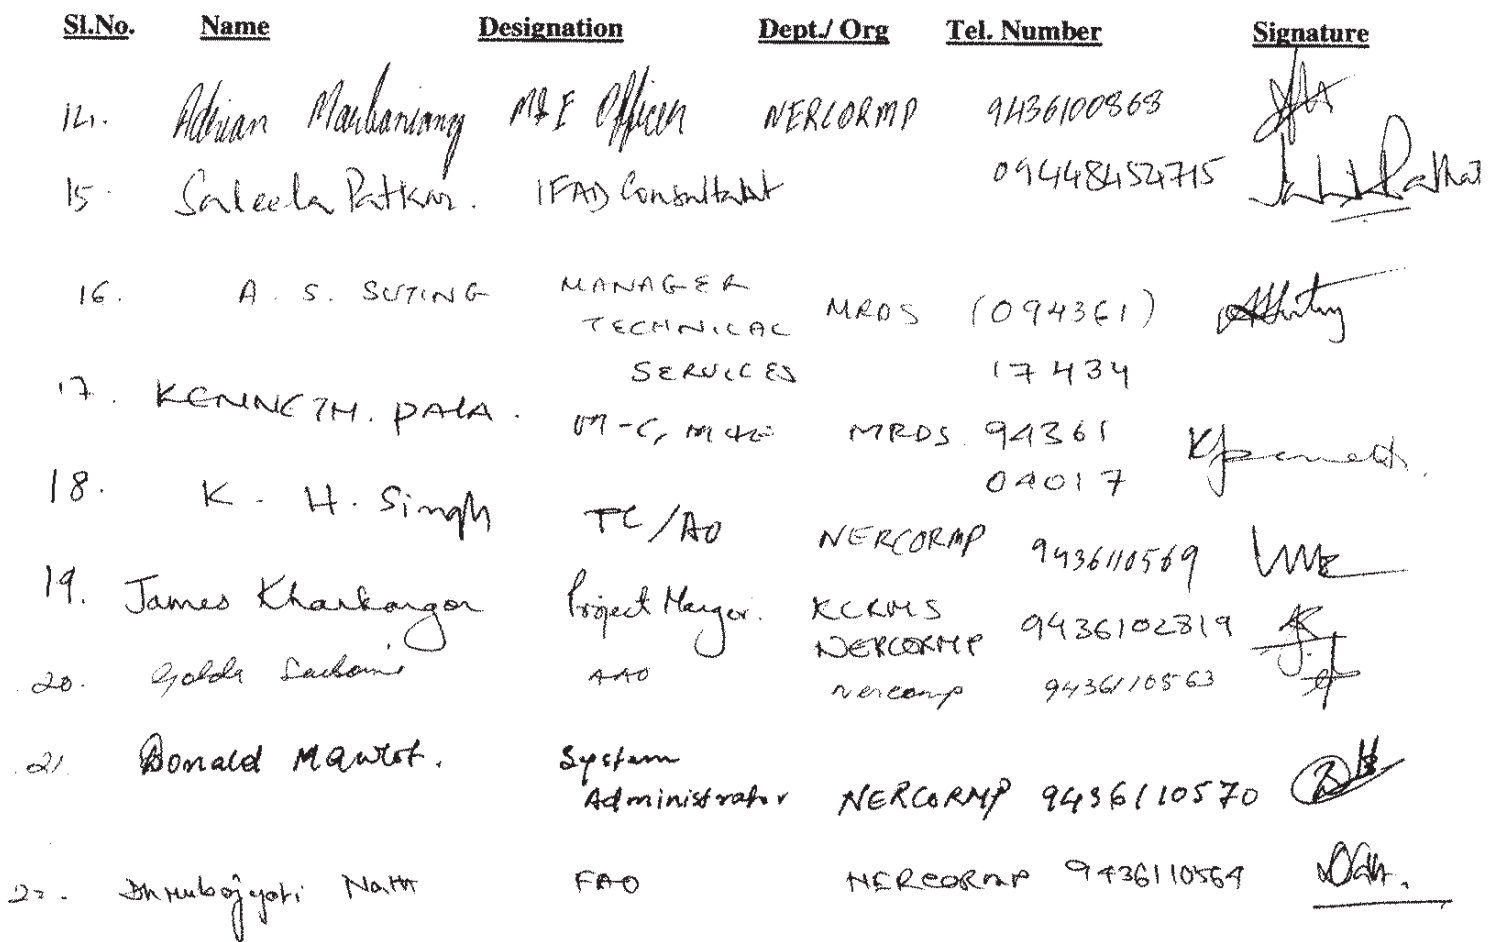 Sl.No. Name Designation Dept./ Org Tel. Number Signature
14. Adrian Marbaniang M&E Officer NERCORMP 9436100868
15. Saleela Patkar. IFAD Consultant 09448454715
16. A. S. SUTING MANAGER MRDS (094361)
TECHNICAL
SERVICES 17434
17. KENNETH. PALA. M&E MRDS 94361
04017
18. K. H. Singh TC/AO NERCORMP 9436110569
19. James Kharkongor Project Manger. KCRMS 9436102819
NERCORMP
20. AAO Nercomp 9436110563
21. Bonald Mawlot. System
Administrator NERCORMP 9436110570
22. Dhrubajyoti Nath FAO NERCORMP 9436110564